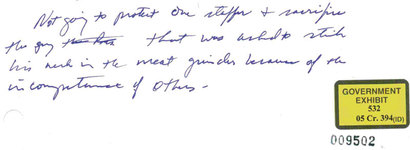 Not going to protect one staffer + sacrifice
the guy that was asked to stick
his neck in the meat grinder because of the
incompetence of others -
GOVERNMENT
EXHIBIT
532
05 Cr. 394(ID)
009502